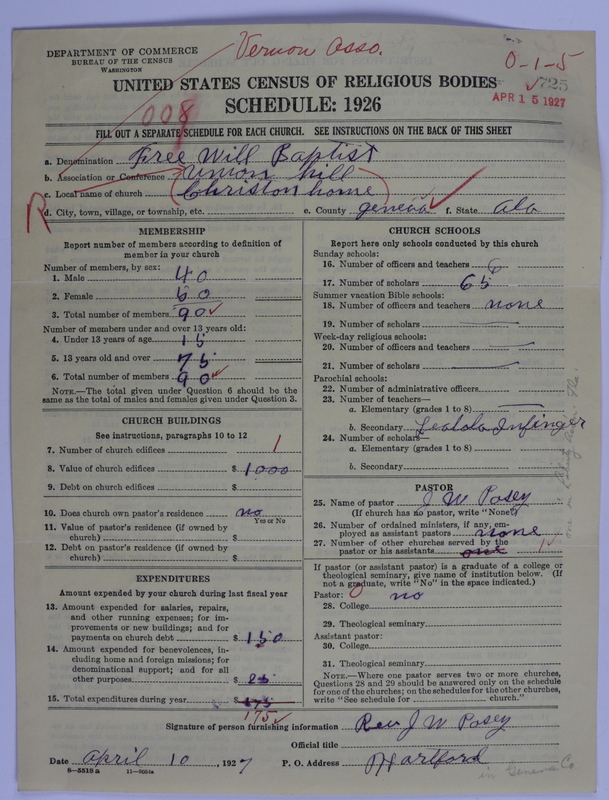 Vernon Asso.
DEPARTMENT OF COMMERCE
BUREAU OF THE CENSUS
WASHINGTON
0-1-5
725
UNITED STATES CENSUS OF RELIGIOUS BODIES
APR 15 1927
SCHEDULE: 1926
008
FILL OUT A SEPARATE SCHEDULE FOR EACH CHURCH. SEE INSTRUCTIONS ON THE BACK OF THIS SHEET
a. Denomination Free Will Baptist
b. Association or Conference Union hill
c. Local name of church (Christon home)
R
d. City, town, village, or township, etc. e. County geneva f. State Ala
MEMBERSHIP
Report number of members according to definition of
member in your church
Number of members, by sex:
1. Male 40
2. Female 50
3. Total number of members 90
Number of members under and over 13 years old:
4. Under 13 years of age 15
5. 13 years old and over 75
6. Total number of members 90
NOTE.—The total given under Question 6 should be the
same as the total of males and females given under Question 3.
CHURCH BUILDINGS
See instructions, paragraphs 10 to 12
7. Number of church edifices 1
8. Value of church edifices $ 1000
9. Debt on church edifices $
10. Does church own pastor's residence? no
Yes or No
11. Value of pastor's residence (if owned by
church) $
12. Debt on pastor's residence (if owned by
church) $
EXPENDITURES
Amount expended by your church during last fiscal year
13. Amount expended for salaries, repairs,
and other running expenses; for im-
provements or new buildings; and for
payments on church debt $ 150
14. Amount expended for benevolences, in-
cluding home and foreign missions; for
denominational support; and for all
other purposes $ 25
15. Total expenditures during year $ 175
175
CHURCH SCHOOLS
Report here only schools conducted by this church
Sunday schools:
16. Number of officers and teachers 6
17. Number of scholars 65
Summer vacation Bible schools:
18. Number of officers and teachers none
19. Number of scholars
Week-day religious schools:
20. Number of officers and teachers
21. Number of scholars
Parochial schools:
22. Number of administrative officers
23. Number of teachers—
a. Elementary (grades 1 to 8)
b. Secondary Infinger
24. Number of scholars—
a. Elementary (grades 1 to 8)
b. Secondary
PASTOR
25. Name of pastor J W Posey
(If church has no pastor, write "None")
26. Number of ordained ministers, if any, em-
ployed as assistant pastors none
27. Number of other churches served by the
pastor or his assistants one 1
If pastor (or assistant pastor) is a graduate of a college or
theological seminary, give name of institution below. (If
not a graduate, write "No" in the space indicated.)
Pastor: 0 no
28. College
29. Theological seminary
Assistant pastor:
30. College
31. Theological seminary
NOTE.—Where one pastor serves two or more churches,
Questions 28 and 29 should be answered only on the schedule
for one of the churches; on the schedules for the other churches,
write "See schedule for church."
Signature of person furnishing information Rev J W Posey
Official title
Date April 10, 1927 P. O. Address Hartford
8—5518a 11—9051a
in Geneva Co